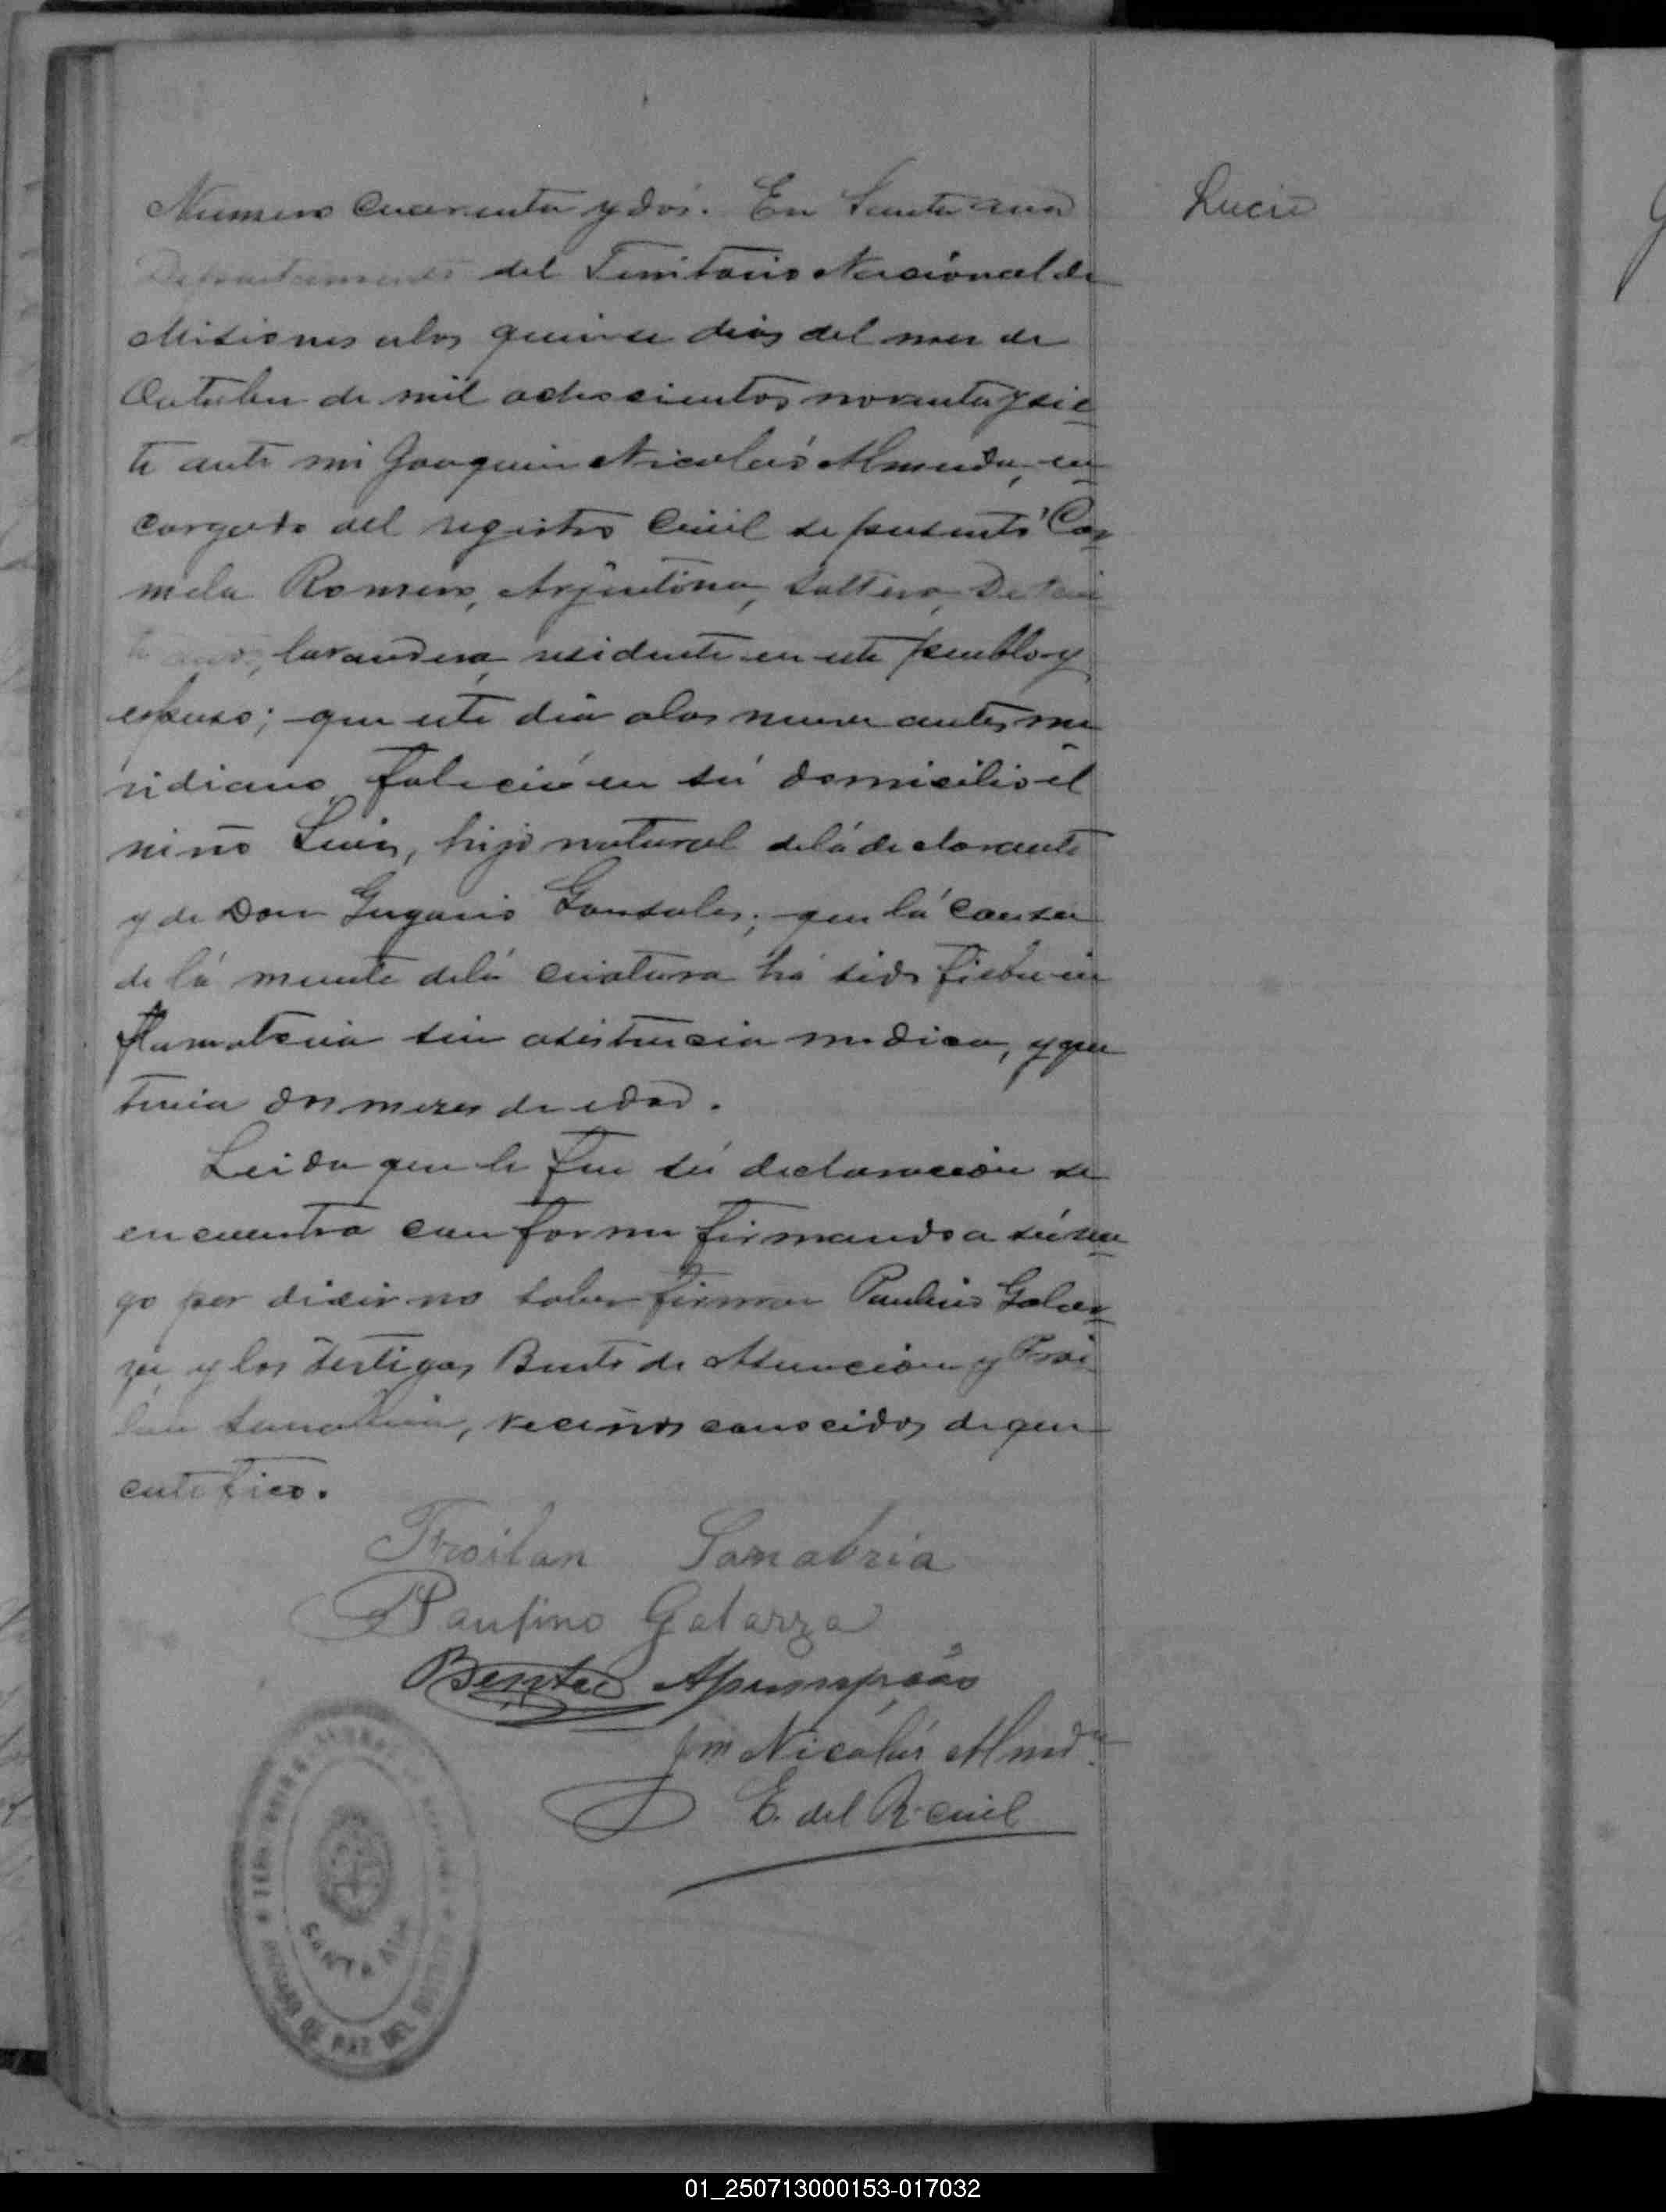 Numero cuarenta y dos. En Santa Ana
Departamento del Territorio Nacional de
Misiones a los quinse dias del mes de
Octubre de mil ochocientos noventa y sie
te ante mi Joaquin Nicolás Almeida, en
cargado del registro Civil se presentó Car
mela Romero, Arjentina, soltera, de vein
te años, lavandera, residente en este pueblo y
espuso; que este dia a las nueve antes me
ridiano falició en sú domicilio el
niño Luis, hijo natural de lá declarante
y de Don Gonsales; que lá causa
de lá muerte de lá criatura há sido fiebre in
flamatoria sin asistencia medica, y que
tenia dos meses de edad.
Leida que le fue sú declaración se
encuentra conforme firmando a sú rue
go por dicir no saber firmar Paulino Galar
za y los testigos Bento de Asuncion y Froi
lan Sanabria, vecinos conocidos de que
certifico.
Froilan Sanabria
Paulino Galarza
Bento Assumpção
Jqn Nicolás Almda
E. del R. Civil
SANTA ANA
JUZGADO DE PAZ DEL
01_250713000153-017032